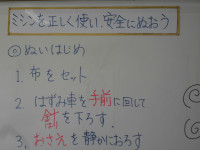 ミシンを正しく使い、安全にぬおう
◎ぬいはじめ
1. 布をセット
2. はずみ車を手前に回して
針を下ろす.
3. おさえを静かにおろす